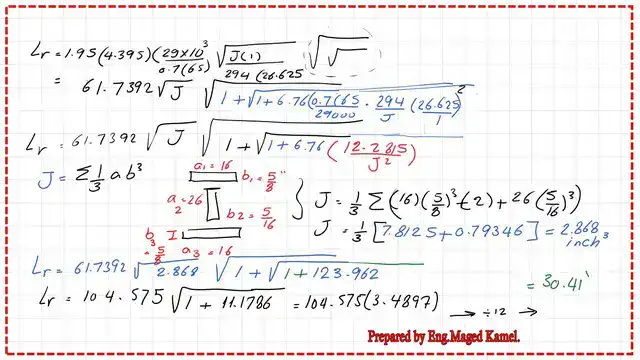 Lr = 1.95 (4.395) (29×10³ / 0.7(65)) √(J(1) / 294(26.625)) √ √
= 61.7392 √J √(1+√(1+6.76 (0.7(65) / 29000 · 294 / J (26.625 / 1))²
Lr = 61.7392 √J √(1+√(1+6.76 (12.2815 / J²)
J = Σ 1/3 ab³
a1 = 16
b1 = 5/8"
a2 = 26
b2 = 5/16
b3 = 5/8
a3 = 16
J = 1/3 Σ (16)(5/8)³(2) + 26(5/16)³)
J = 1/3 [7.8125 + 0.79346] = 2.868 inch³
Lr = 61.7392 √2.868 √(1+√(1+123.962
= 30.41'
Lr = 104.575 √(1+11.1786 = 104.575(3.4897) → ÷12 →
Prepared by Eng.Maged Kamel.